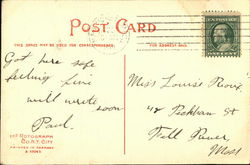 POST CARD
THIS SPACE MAY BE USED FOR CORRESPONDENCE.
FOR ADDRESS ONLY.
Got here safe
feeling fine
will write
soon
Paul.
Miss Louise
42
St
Fall River,
Mass
THE ROTOGRAPH
CO. N.Y. CITY
PRINTED IN GERMANY